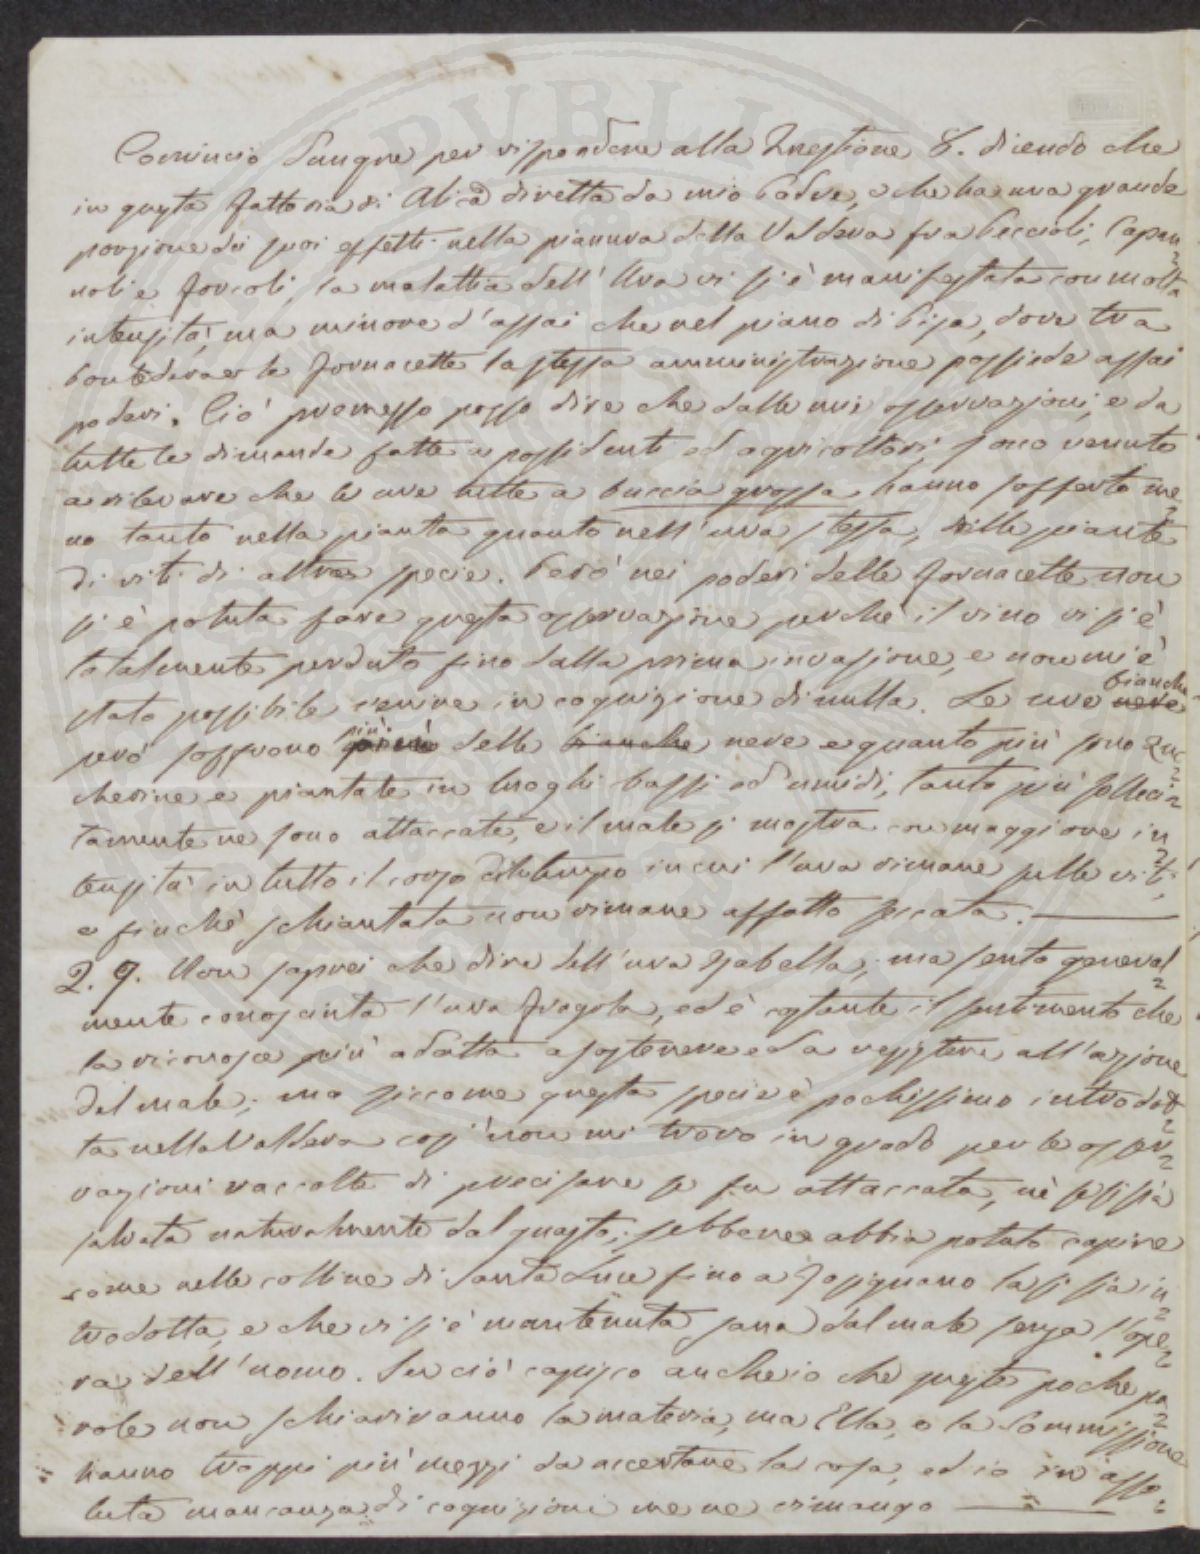 Comincio dunque per rispondere alla Questione 8. dicendo che
in questa fattoria di Alica diretta da mio Padre, e che ha una grande
porzione dei suoi effetti nella pianura della Valdera fra Peccioli, Capan=
noli e Forcoli, la malattia dell'Uva vi si è manifestata con molta
intensità, ma minore d'assai che nel piano di Pisa, dove tra
Pontedera e le Fornacette la stessa amministrazione possiede assai
poderi. Ciò premesso posso dire che dalle mie osservazioni, e da
tutte le dimande fatte a possidenti ed agricoltori, sono venuto
a rilevare che le uve tutte a buccia grossa hanno sofferto me=
no tanto nella pianta quanto nell'uva stessa, delle piante
di viti di altra specie. Però nei poderi delle Fornacette non
si è potuta fare questa osservazione perché il vino vi si è
totalmente perduto fino dalla prima invasione, e non mi è
stato possibile venire in cognizione di nulla. Le uve nere bianche
però soffrono più delle bianche nere e quanto più sono zuc=
cherine e piantate in luoghi bassi ed umidi, tanto più solleci=
tamente ne sono attaccate, e il male si mostra con maggiore in=
tensità in tutto il corso del tempo in cui l'uva rimane sulle viti,
e finché schiantata non rimane affatto seccata.
Q. 9. Non saprei che dire dell'uva Isabella, ma sento general=
mente conosciuta l'uva Fragola, ed è costante il sentimento che
la riconosce più adatta a sostenere ed a resistere all'azione
del male; ma siccome questa specie è pochissimo introdot=
ta nella Valdera così non mi trovo in grado per le osser=
vazioni raccolte di precisare se fu attaccata, nè se si sia
salvata naturalmente dal guasto; sebbene abbia potuto capire
come nelle colline di Santa Luce fino a Rosignano la si sia in=
trodotta, e che vi si è mantenuta sana dal male senza l'ope=
ra dell'uomo. In ciò capisco anche io che queste poche pa=
role non schiariranno la materia, ma Ella, o la Commissione
hanno troppi più mezzi da accertare la cosa, ed io in asso=
luta mancanza di cognizioni me ne rimango